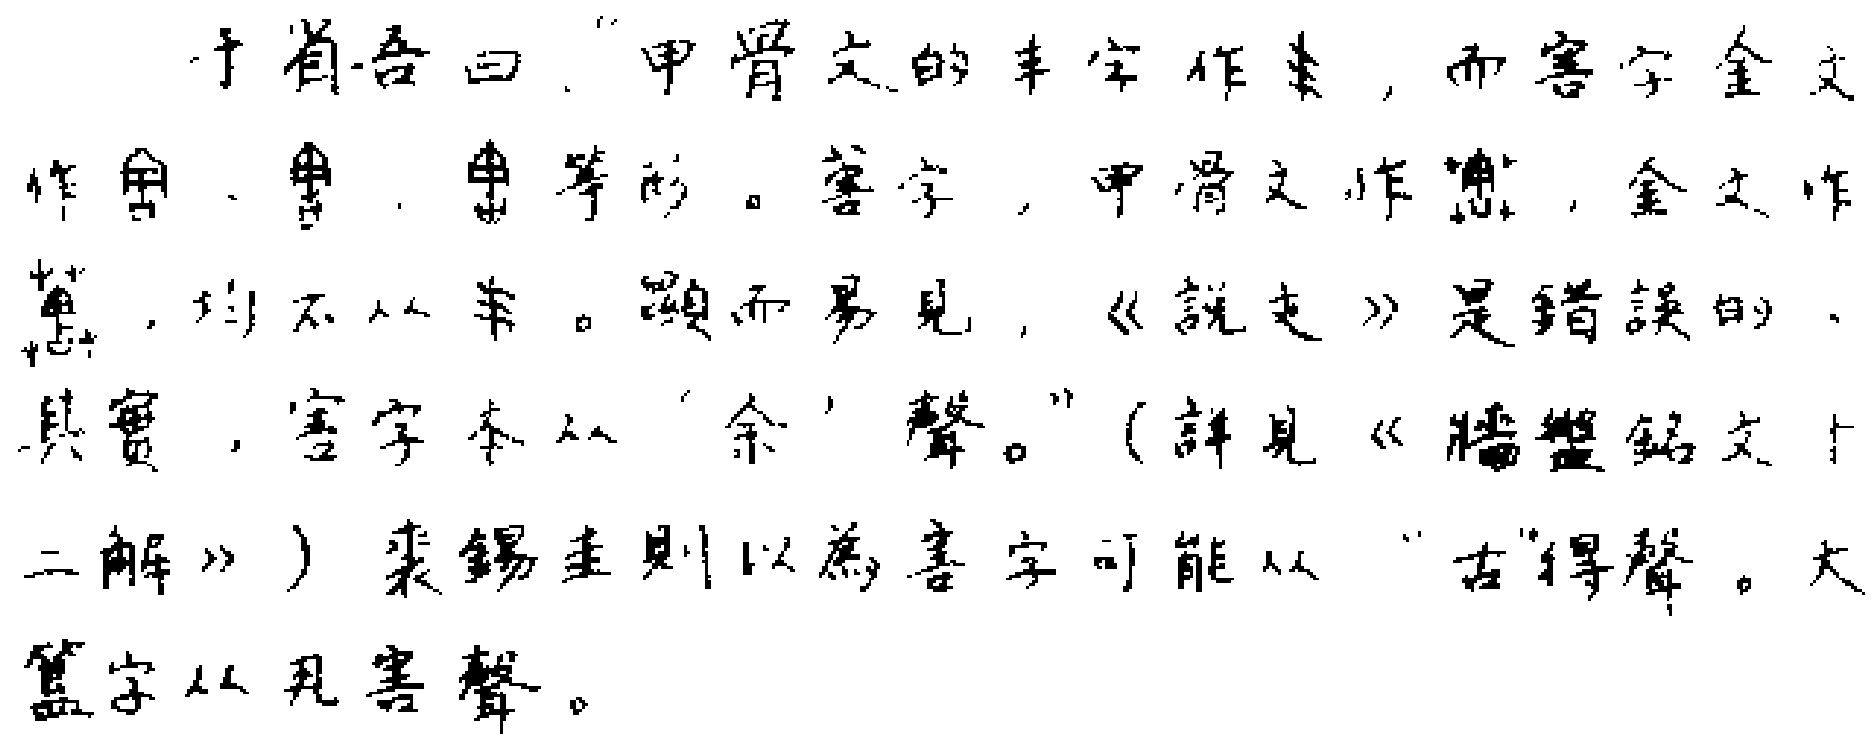 于省吾曰:“甲骨文的丰字作丯,而害字金文
作、、等形。䔤字,甲骨文作,金文作
,均不从丯。顯而易見,《說文》是錯誤的.
其實,害字本从‘余’聲。”(詳見《牆盤銘文十
二解》)裘錫圭則以為害字可能从“古”得聲。大
簋字从丮害聲。